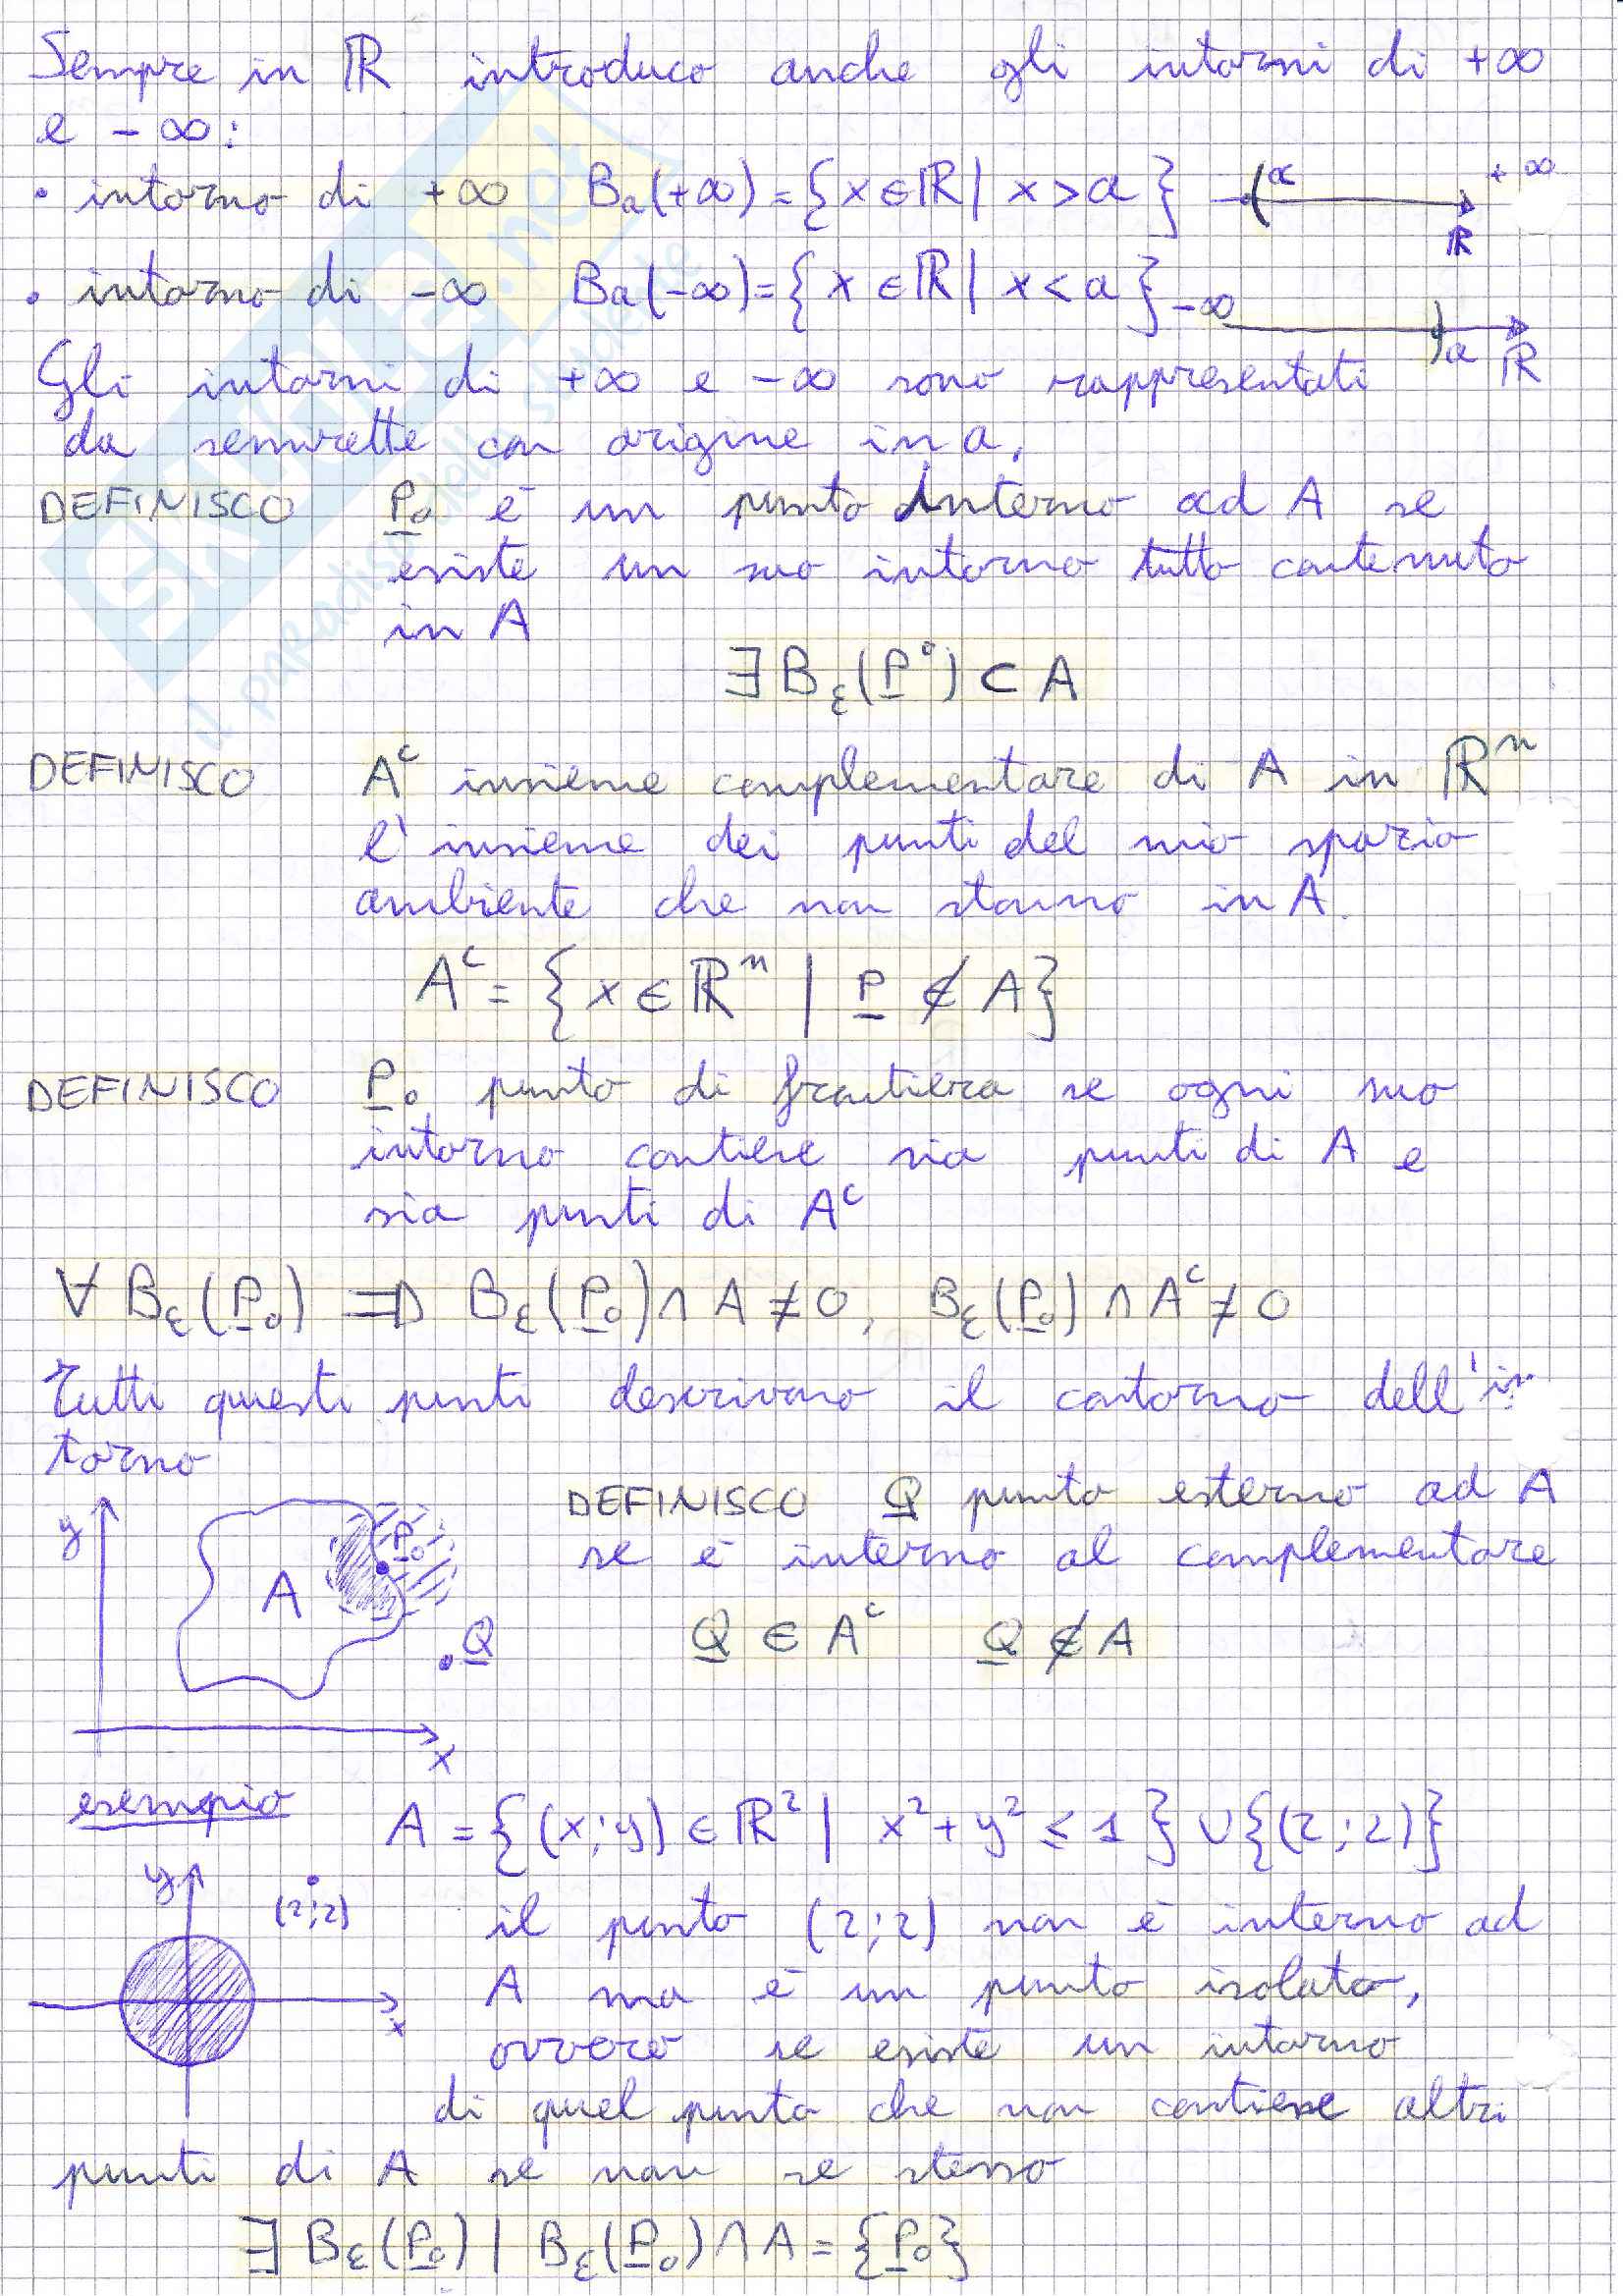 Sempre in ℝ introduco anche gli intorni di +∞
e -∞:
• intorno di +∞ Ba(+∞)={x∈ℝ| x>a} a +∞
ℝ
• intorno di -∞ Ba(-∞)={x∈ℝ| x<a} -∞ a ℝ
Gli intorni di +∞ e -∞ sono rappresentati
da semirette con origine in a.
DEFINISCO P₀ è un punto interno ad A se
esiste un suo intorno tutto contenuto
in A
∃ B_ε(P°) ⊂ A
DEFINISCO Aᶜ insieme complementare di A in ℝⁿ
l'insieme dei punti del mio spazio
ambiente che non stanno in A.
Aᶜ = {x∈ℝⁿ | P ∉ A}
DEFINISCO P₀ punto di frontiera se ogni suo
intorno contiene sia punti di A e
sia punti di Aᶜ
∀ B_ε(P₀) ⇒ B_ε(P₀)∩A≠0, B_ε(P₀)∩Aᶜ≠0
Tutti questi punti descrivono il contorno dell'in
torno
y A P₀ Q x
DEFINISCO Q punto esterno ad A
se è interno al complementare
Q ∈ Aᶜ Q ∉ A
esempio A = {(x;y)∈ℝ² | x²+y² ≤ 1} ∪ {(2;2)}
y (2;2) x
il punto (2;2) non è interno ad
A ma è un punto isolato,
ovvero se esiste un intorno
di quel punto che non contiene altri
punti di A se non se stesso
∃ B_ε(P₀) | B_ε(P₀)∩A={P₀}
SKUOLA.net
il paradiso dello studente